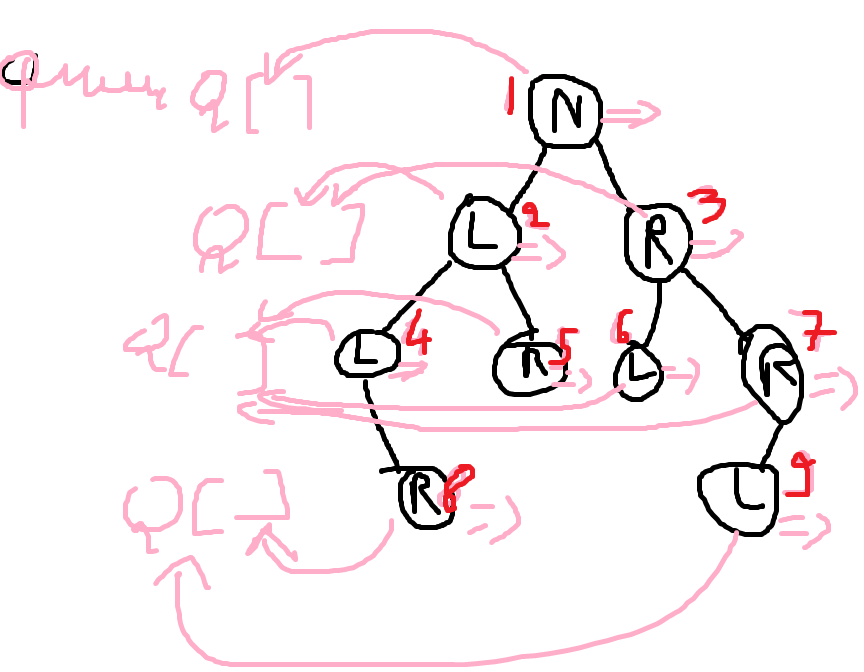 Q[ ]
1 N
Q[ ]
L 2
R 3
Q[ ]
L 4
R 5
6 L
R 7
Q[ ]
R 8
L 9